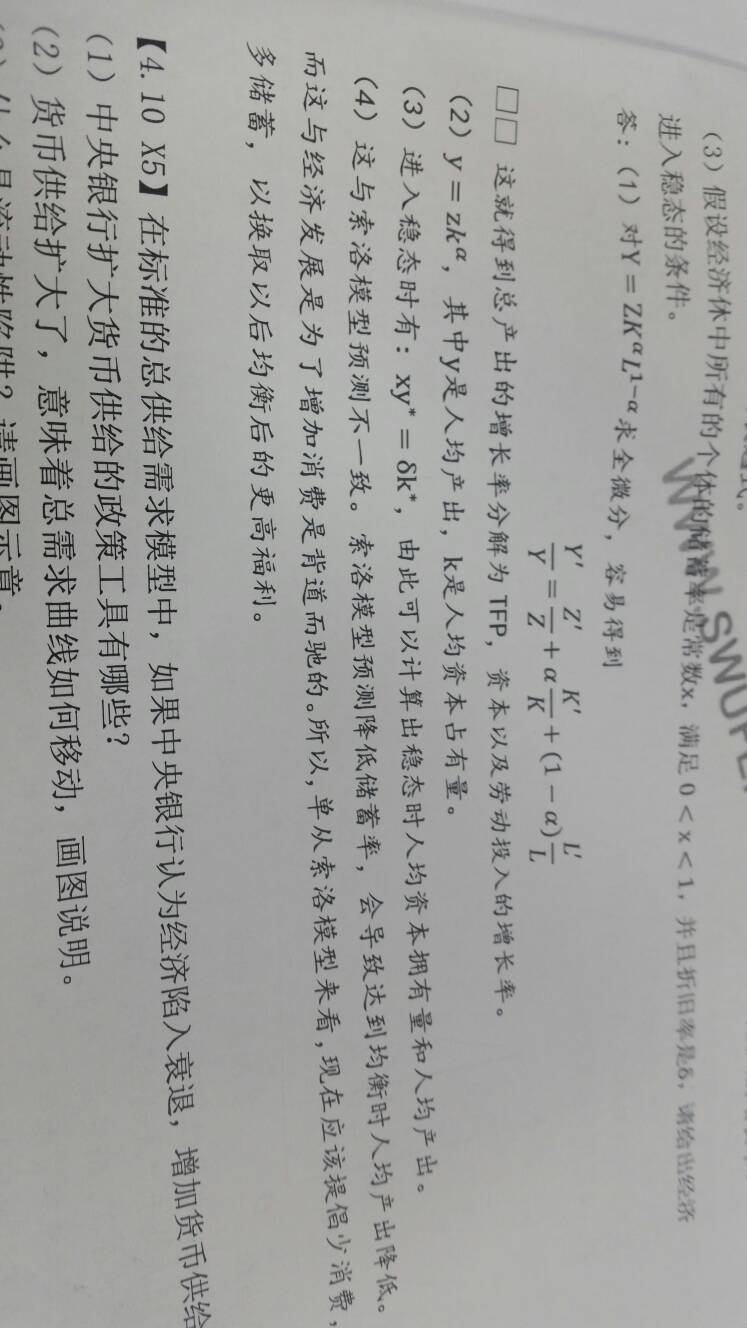 式。
(3) 假设经济体中所有的个体的储蓄率是常数x，满足 0 < x < 1，并且折旧率是δ，请给出经济
进入稳态的条件。
答：(1) 对Y = ZK^αL^1−α求全微分，容易得到
Y′/Y = Z′/Z + α K′/K + (1 − α) L′/L
□□ 这就得到总产出的增长率分解为 TFP，资本以及劳动投入的增长率。
(2) y = zk^α，其中y是人均产出，k是人均资本占有量。
(3) 进入稳态时有：xy* = δk*，由此可以计算出稳态时人均资本拥有量和人均产出。
(4) 这与索洛模型预测不一致。索洛模型预测降低储蓄率，会导致达到均衡时人均产出降低。
而这与经济发展是为了增加消费是背道而驰的。所以，单从索洛模型来看，现在应该提倡少消费，
多储蓄，以换取以后均衡后的更高福利。
【4.10 X5】在标准的总供给需求模型中，如果中央银行认为经济陷入衰退，增加货币供给
(1) 中央银行扩大货币供给的政策工具有哪些？
(2) 货币供给扩大了，意味着总需求曲线如何移动，画图说明。
什么是流动性陷阱？请画图示意。